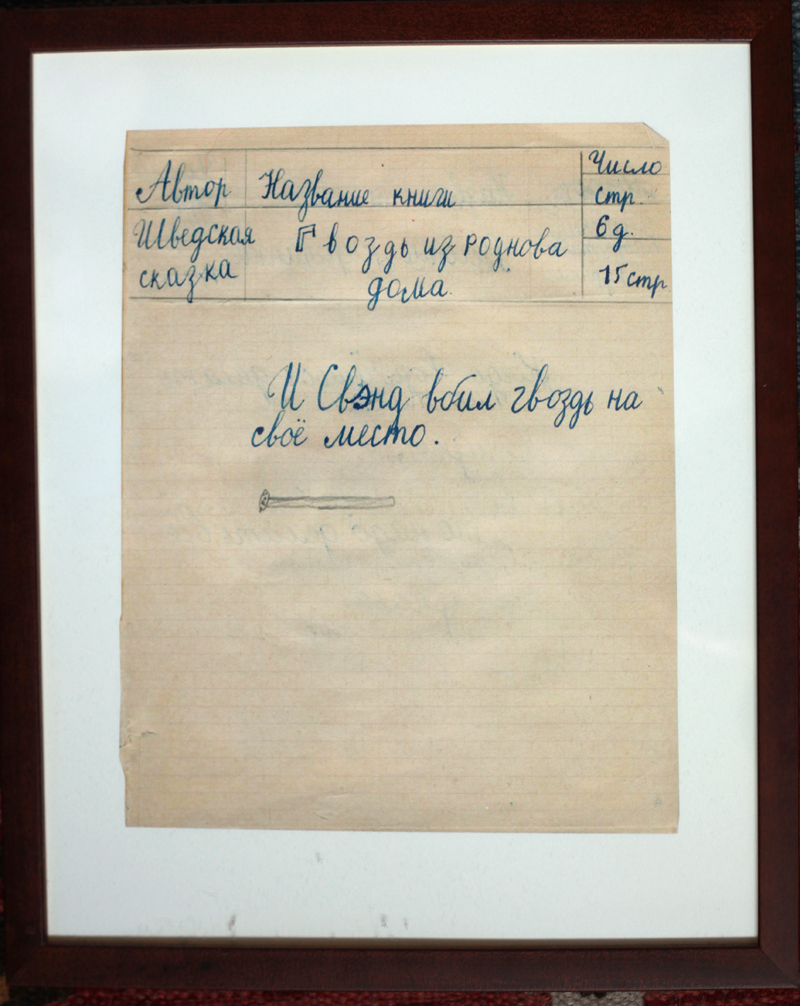 Автор Название книги Число
стр.
Шведская Гвоздь из роднова 6 д.
сказка дома. 15 стр
И Свэнд вбил гвоздь на
своё место.